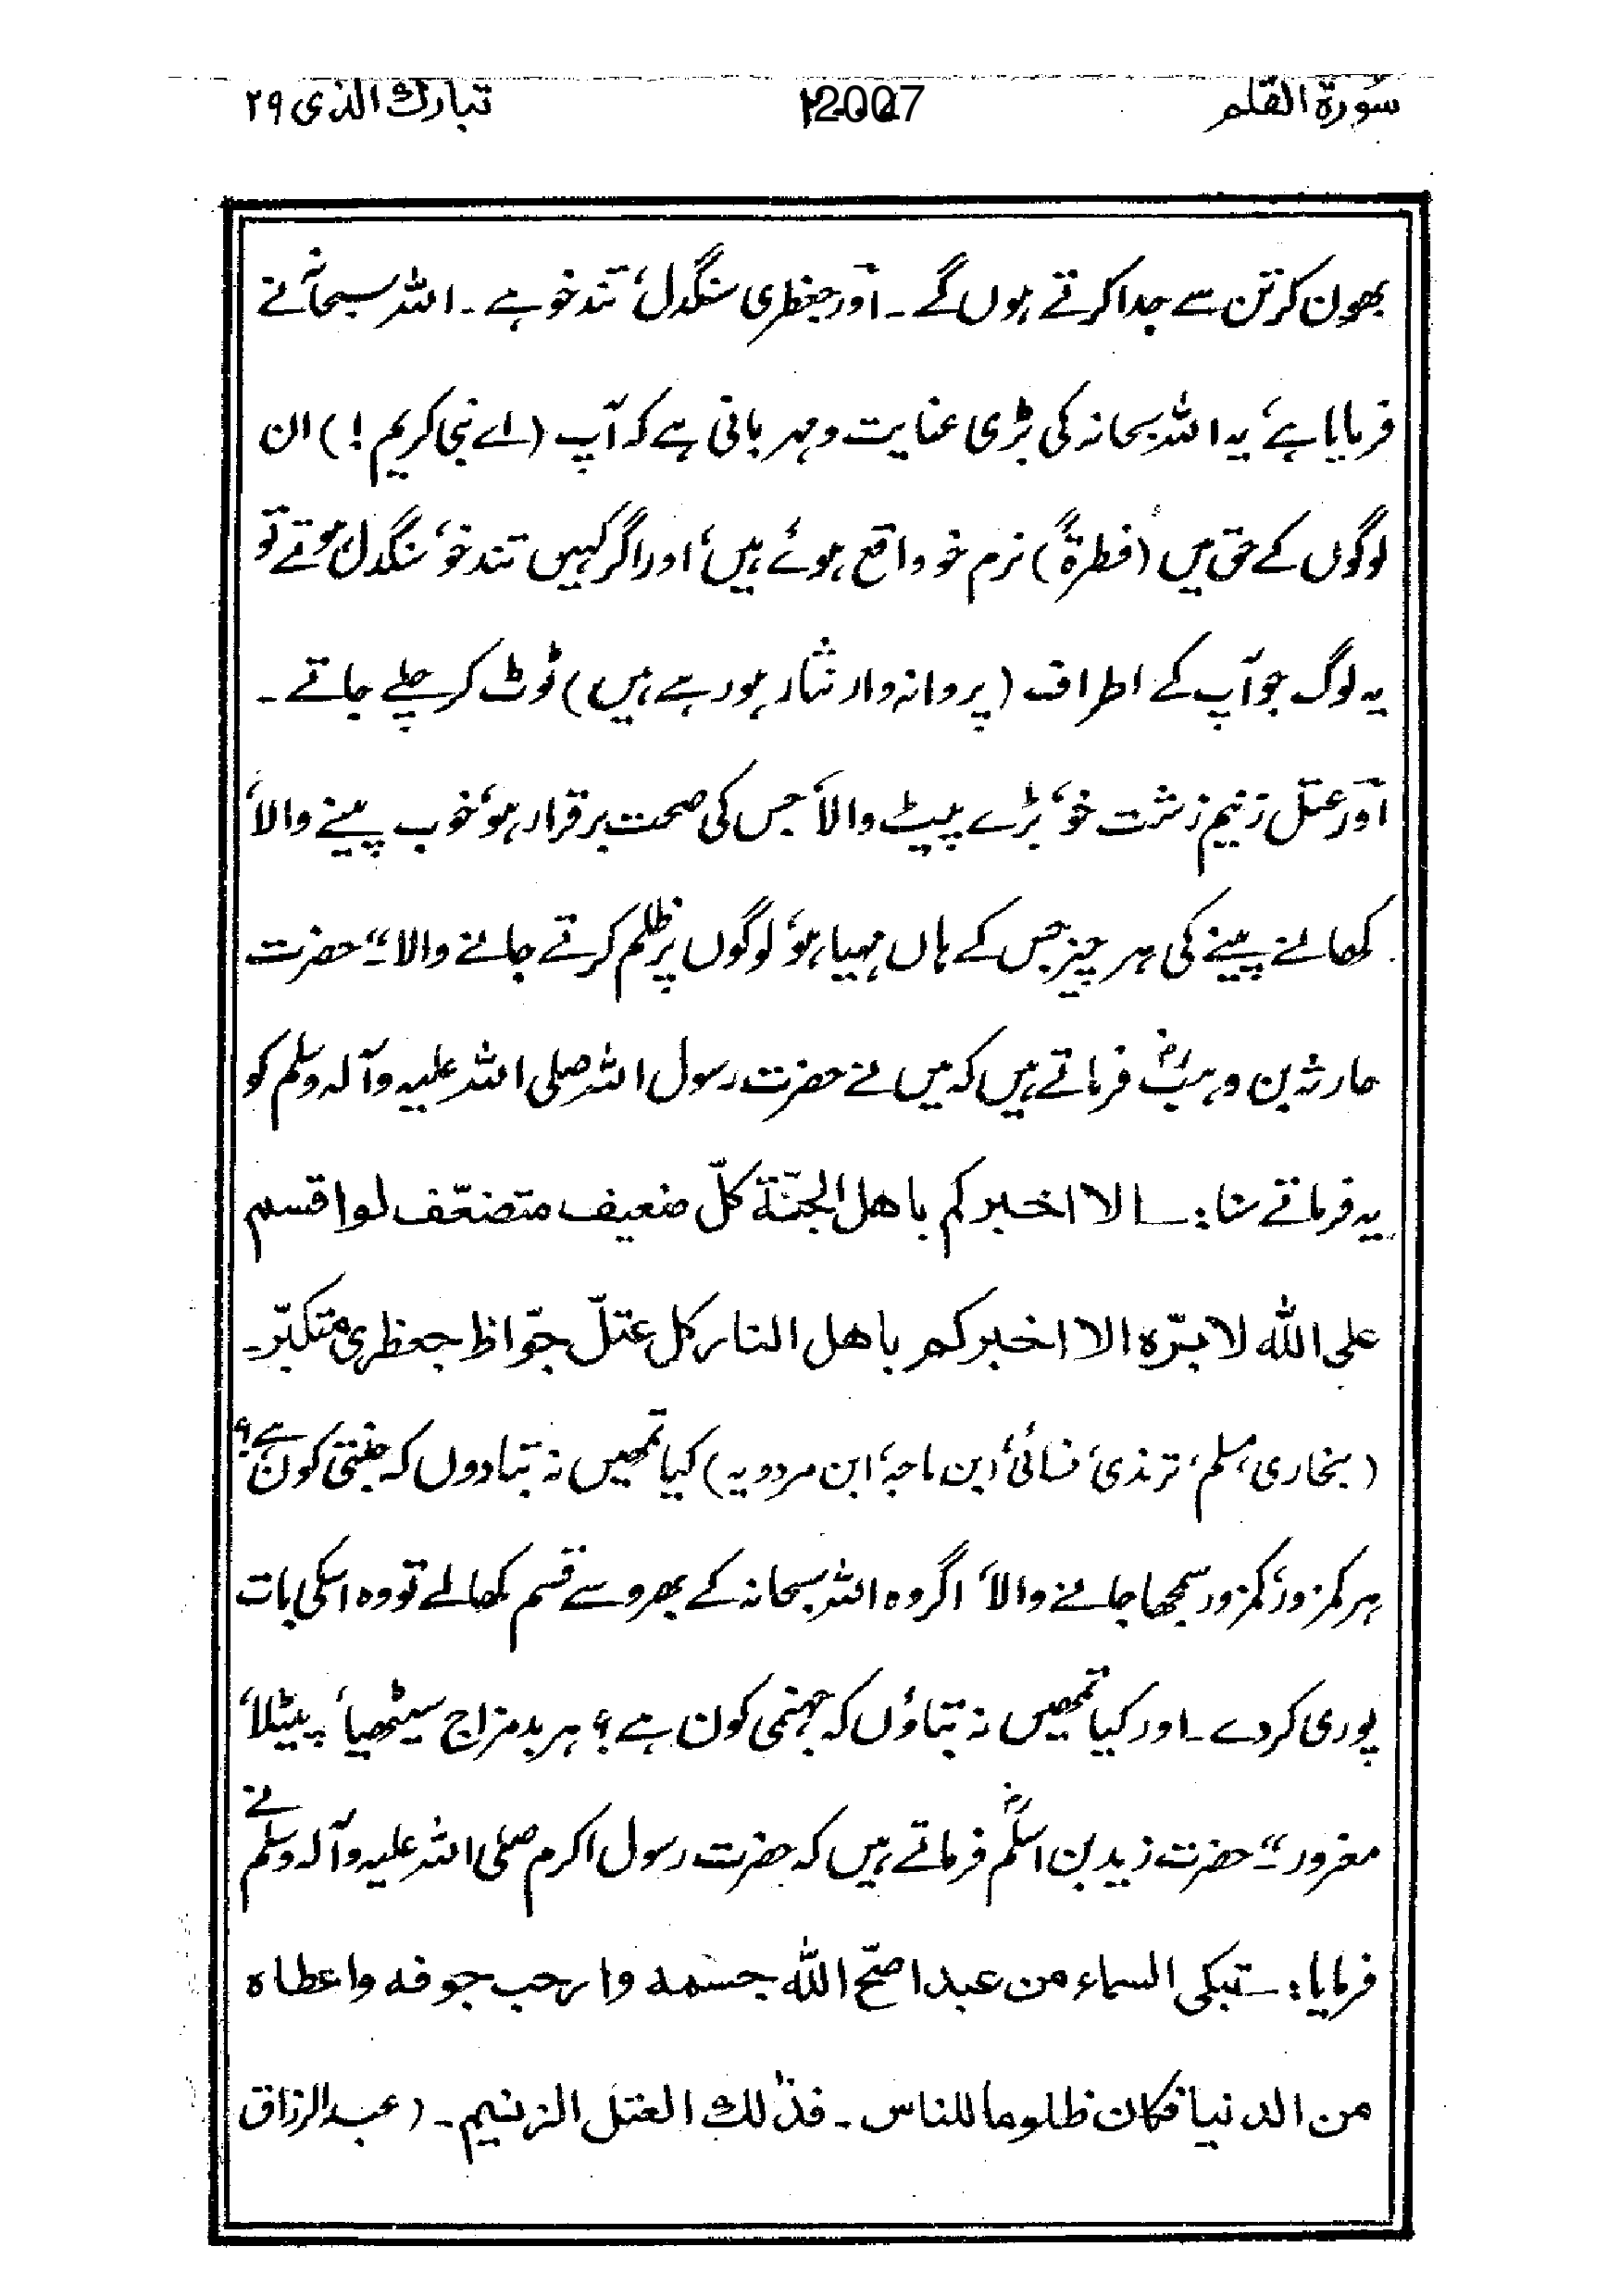 سُورة القلم
2007
تبارك الذى ٢٩
بھون کر تن سے جدا کرتے ہوں گے ۔ اور جعظری سنگدل‘ تند خو ہے ۔ اللہ سبحانہٗ نے
فرمایا ہے‘ یہ اللہ سبحانہ کی بڑی عنایت و مہربانی ہے کہ آپ (اے نبی کریم !) ان
لوگوں کے حق میں (فطرۃً) نرم خو واقع ہوئے ہیں‘ اور اگر کہیں تند خو‘ سنگدل ہوتے تو
یہ لوگ جو آپ کے اطراف (پروانہ وار نثار ہو رہے ہیں) ٹوٹ کر چلے جاتے ۔
اور عتل زنیم زشت خو‘ بڑے پیٹ والا‘ جس کی صحت برقرار ہو‘ خوب پینے والا‘
کھانے پینے کی ہر چیز جس کے ہاں مہیا ہو‘ لوگوں پر ظلم کرتے جانے والا“۔ حضرت
حارثہ بن وہبؓ فرماتے ہیں کہ میں نے حضرت رسول اللہ صلی اللہ علیہ وآلہ وسلم کو
یہ فرماتے سنا :۔ الا اخبرکم باھل الجنّة کلّ ضعیف متضعّف لو اقسم
علی اللّٰه لا برّه الا اخبرکم باھل النار کل عتلّ جوّاظ جعظری متکبّر۔
(بخاری‘ مسلم‘ ترمذی‘ نسائی‘ ابن ماجہ‘ ابن مردویہ) کیا تمھیں نہ بتادوں کہ جنتی کون ہے؟
ہر کمزور‘ کمزور سمجھا جانے والا‘ اگر وہ اللہ سبحانہ کے بھروسے قسم کھالے تو وہ اسکی بات
پوری کردے ۔ اور کیا تمھیں نہ بتاؤں کہ جہنمی کون ہے؟ ہر بد مزاج سیٹھیا‘ پیٹلا‘
مغرور“۔ حضرت زید بن اسلمؓ فرماتے ہیں کہ حضرت رسول اکرم صلی اللہ علیہ وآلہ وسلم نے
فرمایا :۔ تبکی السماء من عبد اصحّ اللّٰه جسمه وارحب جوفه واعطاه
من الدنیا فکان ظلوما للناس ۔ فذٰلك العتل الزنیم ۔ (عبد الرزاق